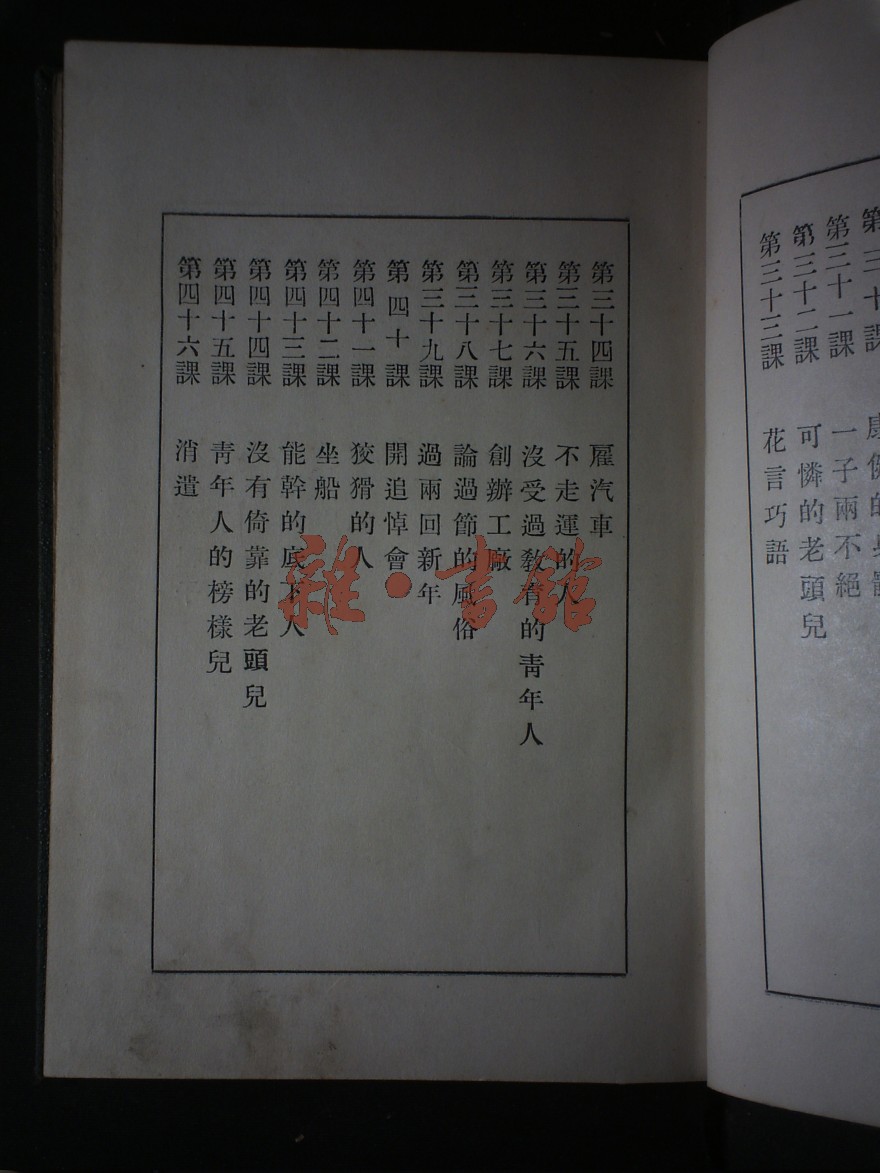 第三十課 康健的身體
第三十一課 一子兩不絕
第三十二課 可憐的老頭兒
第三十三課 花言巧語
第三十四課 雇汽車
第三十五課 不走運的人
第三十六課 沒受過教育的靑年人
第三十七課 創辦工廠
第三十八課 論過節的風俗
第三十九課 過兩回新年
第四十課 開追悼會
第四十一課 狡猾的人
第四十二課 坐船
第四十三課 能幹的底下人
第四十四課 沒有倚靠的老頭兒
第四十五課 靑年人的榜樣兒
第四十六課 消遣
雜·書館